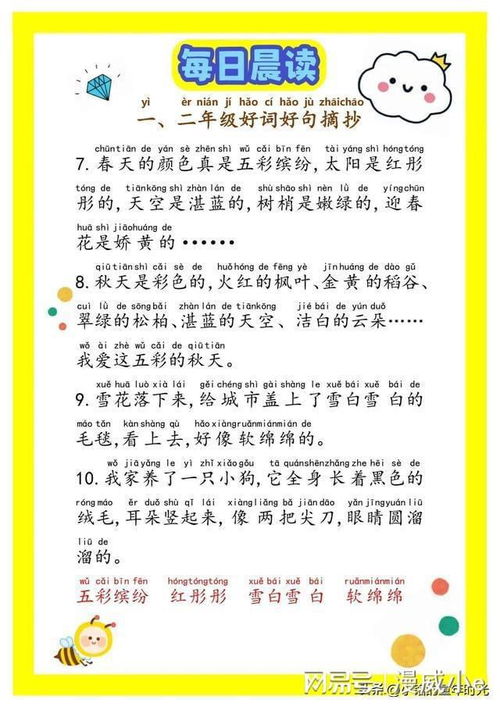 每日晨读
yì èr nián jí hǎo cí hǎo jù zhāichāo
一、二年级好词好句摘抄
chūntiān de yán sè zhēn shì wǔ cǎi bīn fēn tài yáng shì hóngtóng
7.春天的颜色真是五彩缤纷,太阳是红彤
tóng de tiānkōng shì zhàn lán de shù shāo shì nèn lǜ de yíngchūn
彤的,天空是湛蓝的,树梢是嫩绿的,迎春
huā shì jiāohuáng de
花是娇黄的······
qiūtiān shì cǎi sè de huǒhóng de fēng yè jīnhuáng de dào gǔ
8.秋天是彩色的,火红的枫叶、金黄的稻谷、
cuì lǜ de sōngbǎi zhàn lán de tiānkōng jié bái de yún duǒ
翠绿的松柏、湛蓝的天空、洁白的云朵······
wǒ ài zhè wǔ cǎi de qiūtiān
我爱这五彩的秋天。
xuě huā luò xià lái gěi chéng shì gài shàng le xuě bái xuě bái de
9.雪花落下来,给城市盖上了雪白雪白的
máo tǎn kàn shàng qù hǎo xiàng ruǎnmiánmián de
毛毯,看上去,好像软绵绵的。
wǒ jiā yǎng le yì zhī xiǎo gǒu tā quánshēnzhǎngzhe hēi sè de
10.我家养了一只小狗,它全身长着黑色的
róngmáo ěr duǒ shù qǐ lái xiàng liǎng bǎ jiān dāo yǎn jīng yuán liū
绒毛,耳朵竖起来,像两把尖刀,眼睛圆溜
liū de
溜的。
wǔ cǎi bīn fēn hóngtóngtóng xuě bái xuě bái ruǎnmiánmián
五彩缤纷 红彤彤 雪白雪白 软绵绵
网易号 | 漫威小e